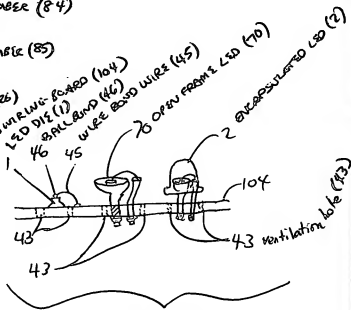 (84)
(85)
WIRING BOARD (104)
LED DIE (1)
BALL BOND (46)
WIRE BOND WIRE (45)
OPEN FRAME LED (70)
ENCAPSULATED LED (2)
46
45
1
70
2
104
43
43
43 ventilation hole (43)